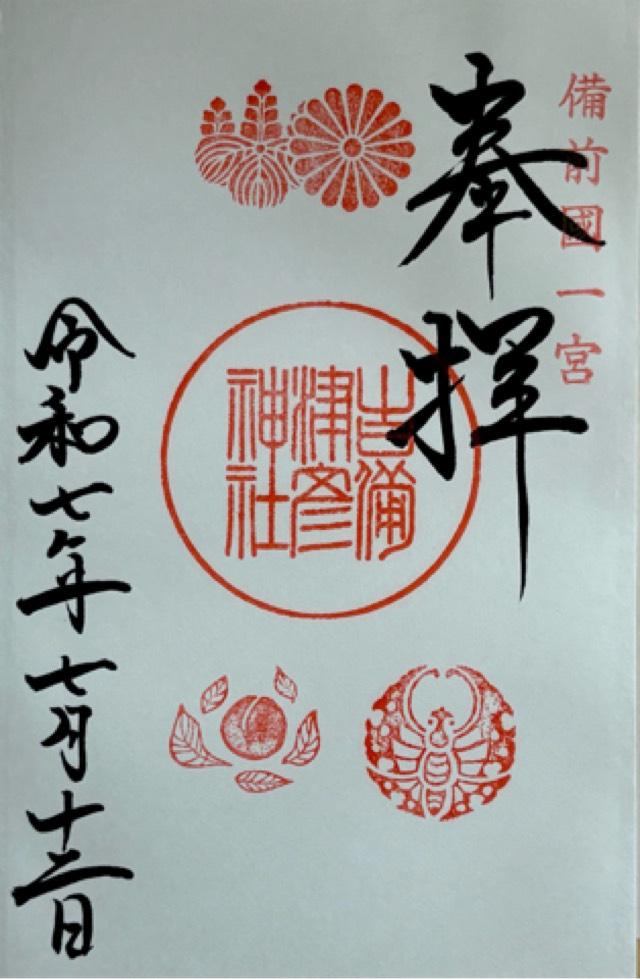 備前國一宮
奉拝
吉備
津彦
神社
令和七年七月十二日